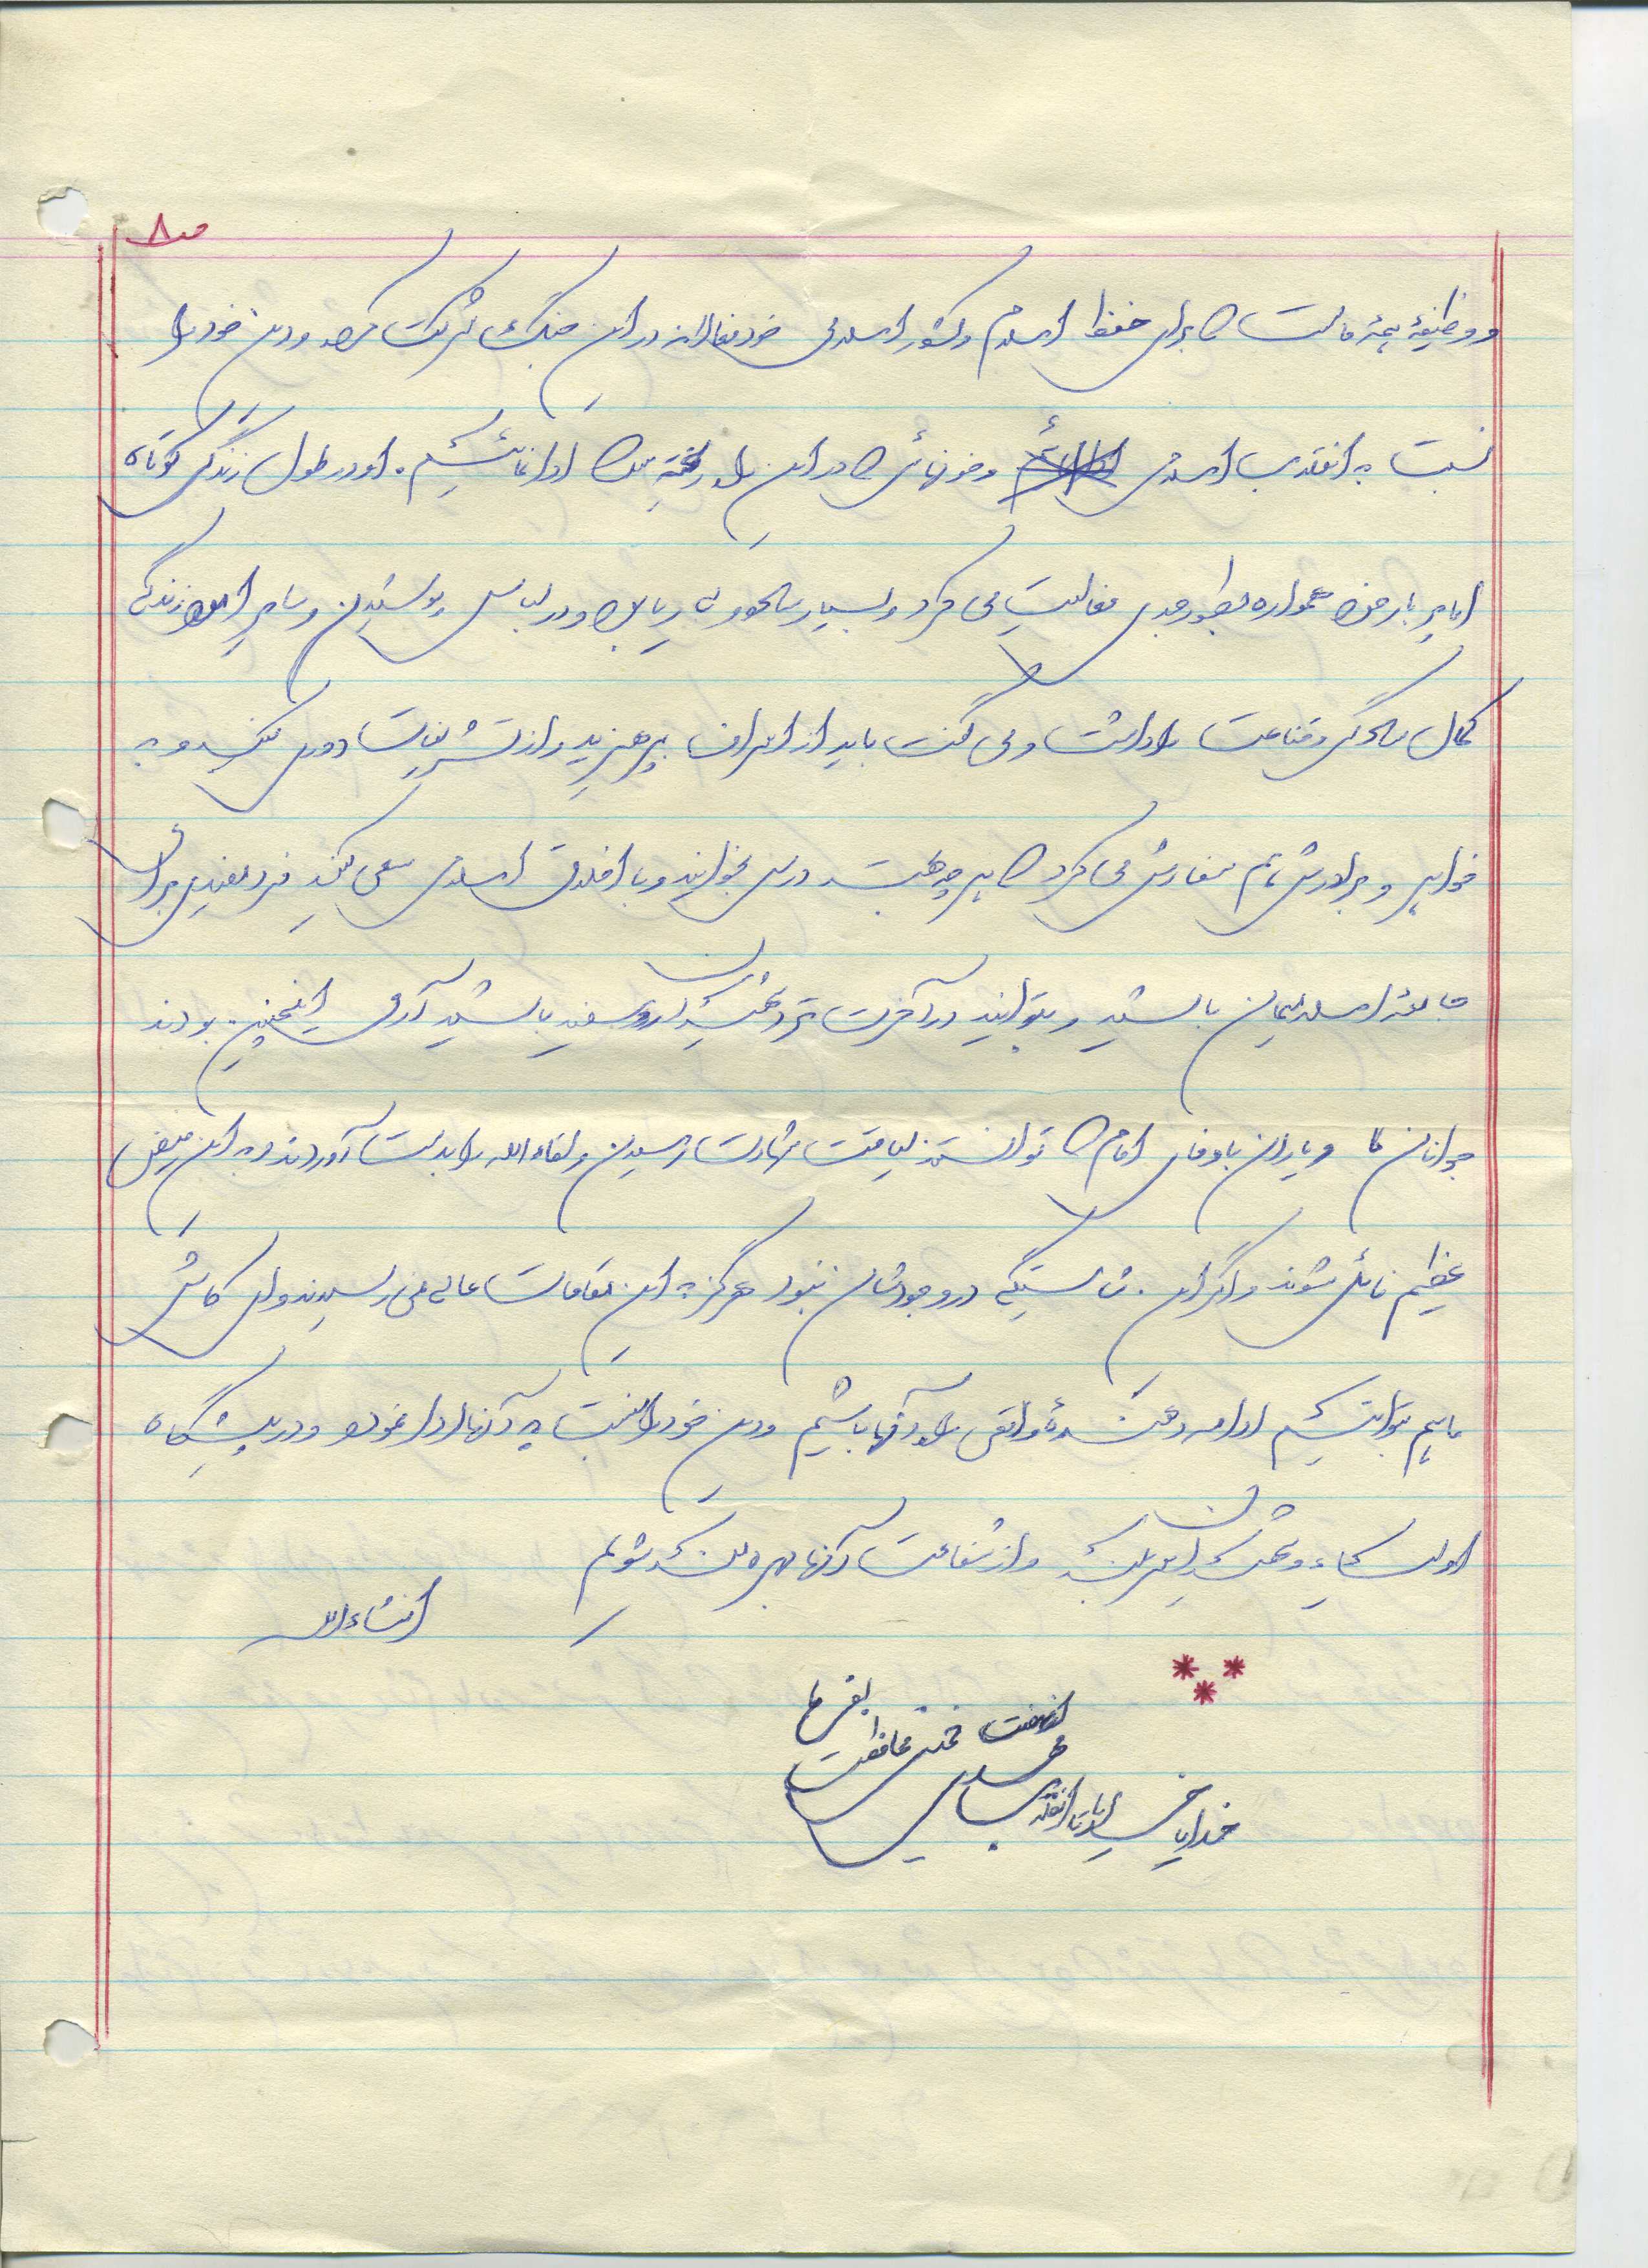 ص۸
و وظیفهٔ همهٔ ماست که برای حفظ اسلام و کشور اسلامی خود فعالانه در این جنگ شرکت کرده و دین خود را
نسبت به انقلاب اسلامی و خونهائی که در این راه ریخته شده ادا نمائیم. او در طول زندگی کوتاه
اما پربار خود همواره بطور جدی فعالیت می کرد و بسیار ساده و بی ریا بود و در لباس پوشیدن و سایر امور زندگی
کمال سادگی و قناعت را داشت و می گفت باید از اسراف بپرهیزید و از تشریفات دوری کنید و به
خواهر و برادرش هم سفارش می کرد که هر چه بهتر درس بخوانید و با اخلاق اسلامی سعی کنید فرد مفیدی برای
جامعه اسلامیمان باشید و بتوانید در آخرت نزد شهیدان روسفید باشید آری اینچنین بودند
جوانان ما و یاران باوفای امام که توانستند لیاقت شهادت رسیدن و لقاءالله را بدست آوردند و به این فیض
عظیم نائل شوند و اگر این شایستگی در وجودشان نبود هرگز به این مقامات عالی نمی رسیدند ولی کاش
ما هم بتوانیم ادامه دهندهٔ واقعی راه آنها باشیم و دین خود را نسبت به آنها ادا نموده و در پیشگاه
اولیاء و شهیدان سربلند و از شفاعت آنها بهره مند شویم
انشاءالله
خدایا خدایا تا انقلاب مهدی
از نهضت خمینی محافظت بفرما